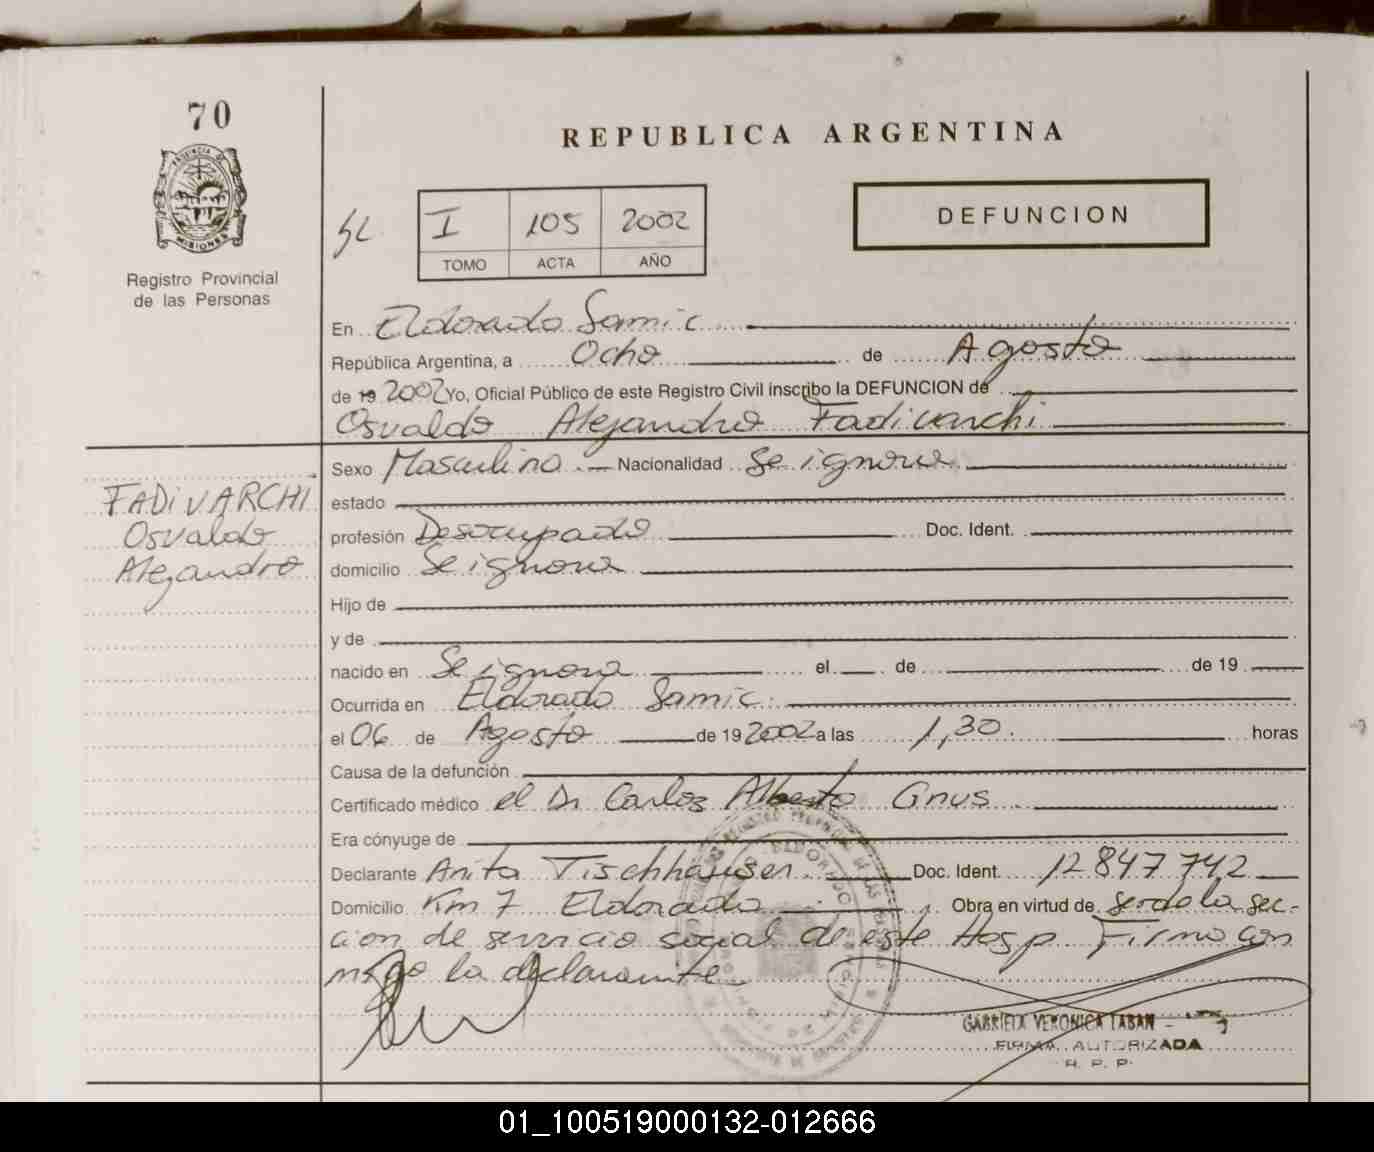 70
PROVINCIA DE
MISIONES
Registro Provincial
de las Personas
REPUBLICA ARGENTINA
DEFUNCION
I 105 2002
TOMO ACTA AÑO
En Eldorado Samic
República Argentina, a Ocho de Agosto
de 19 2002 Yo, Oficial Público de este Registro Civil inscribo la DEFUNCION de
Osvaldo Alejandro Fadivarchi
FADIVARCHI
Osvaldo
Alejandro
Sexo Masculino.— Nacionalidad Se ignora
estado
profesión Desocupado Doc. Ident.
domicilio Se ignora
Hijo de
y de
nacido en Se ignora el de de 19
Ocurrida en Eldorado Samic
el 06 de Agosto de 19 2002 a las 1,30. horas
Causa de la defunción
Certificado médico el Dr Carlos Alberto Gnus
Era cónyuge de
Declarante Anita Tischhauser Doc. Ident. 12 847 742
Domicilio Km 7 Eldorado Obra en virtud de ser de la sec-
cion de servicio social de este Hosp Firma con
migo la declarante
GABRIELA VERONICA TABAN
FIRMA AUTORIZADA
R. P. P.
01_100519000132-012666